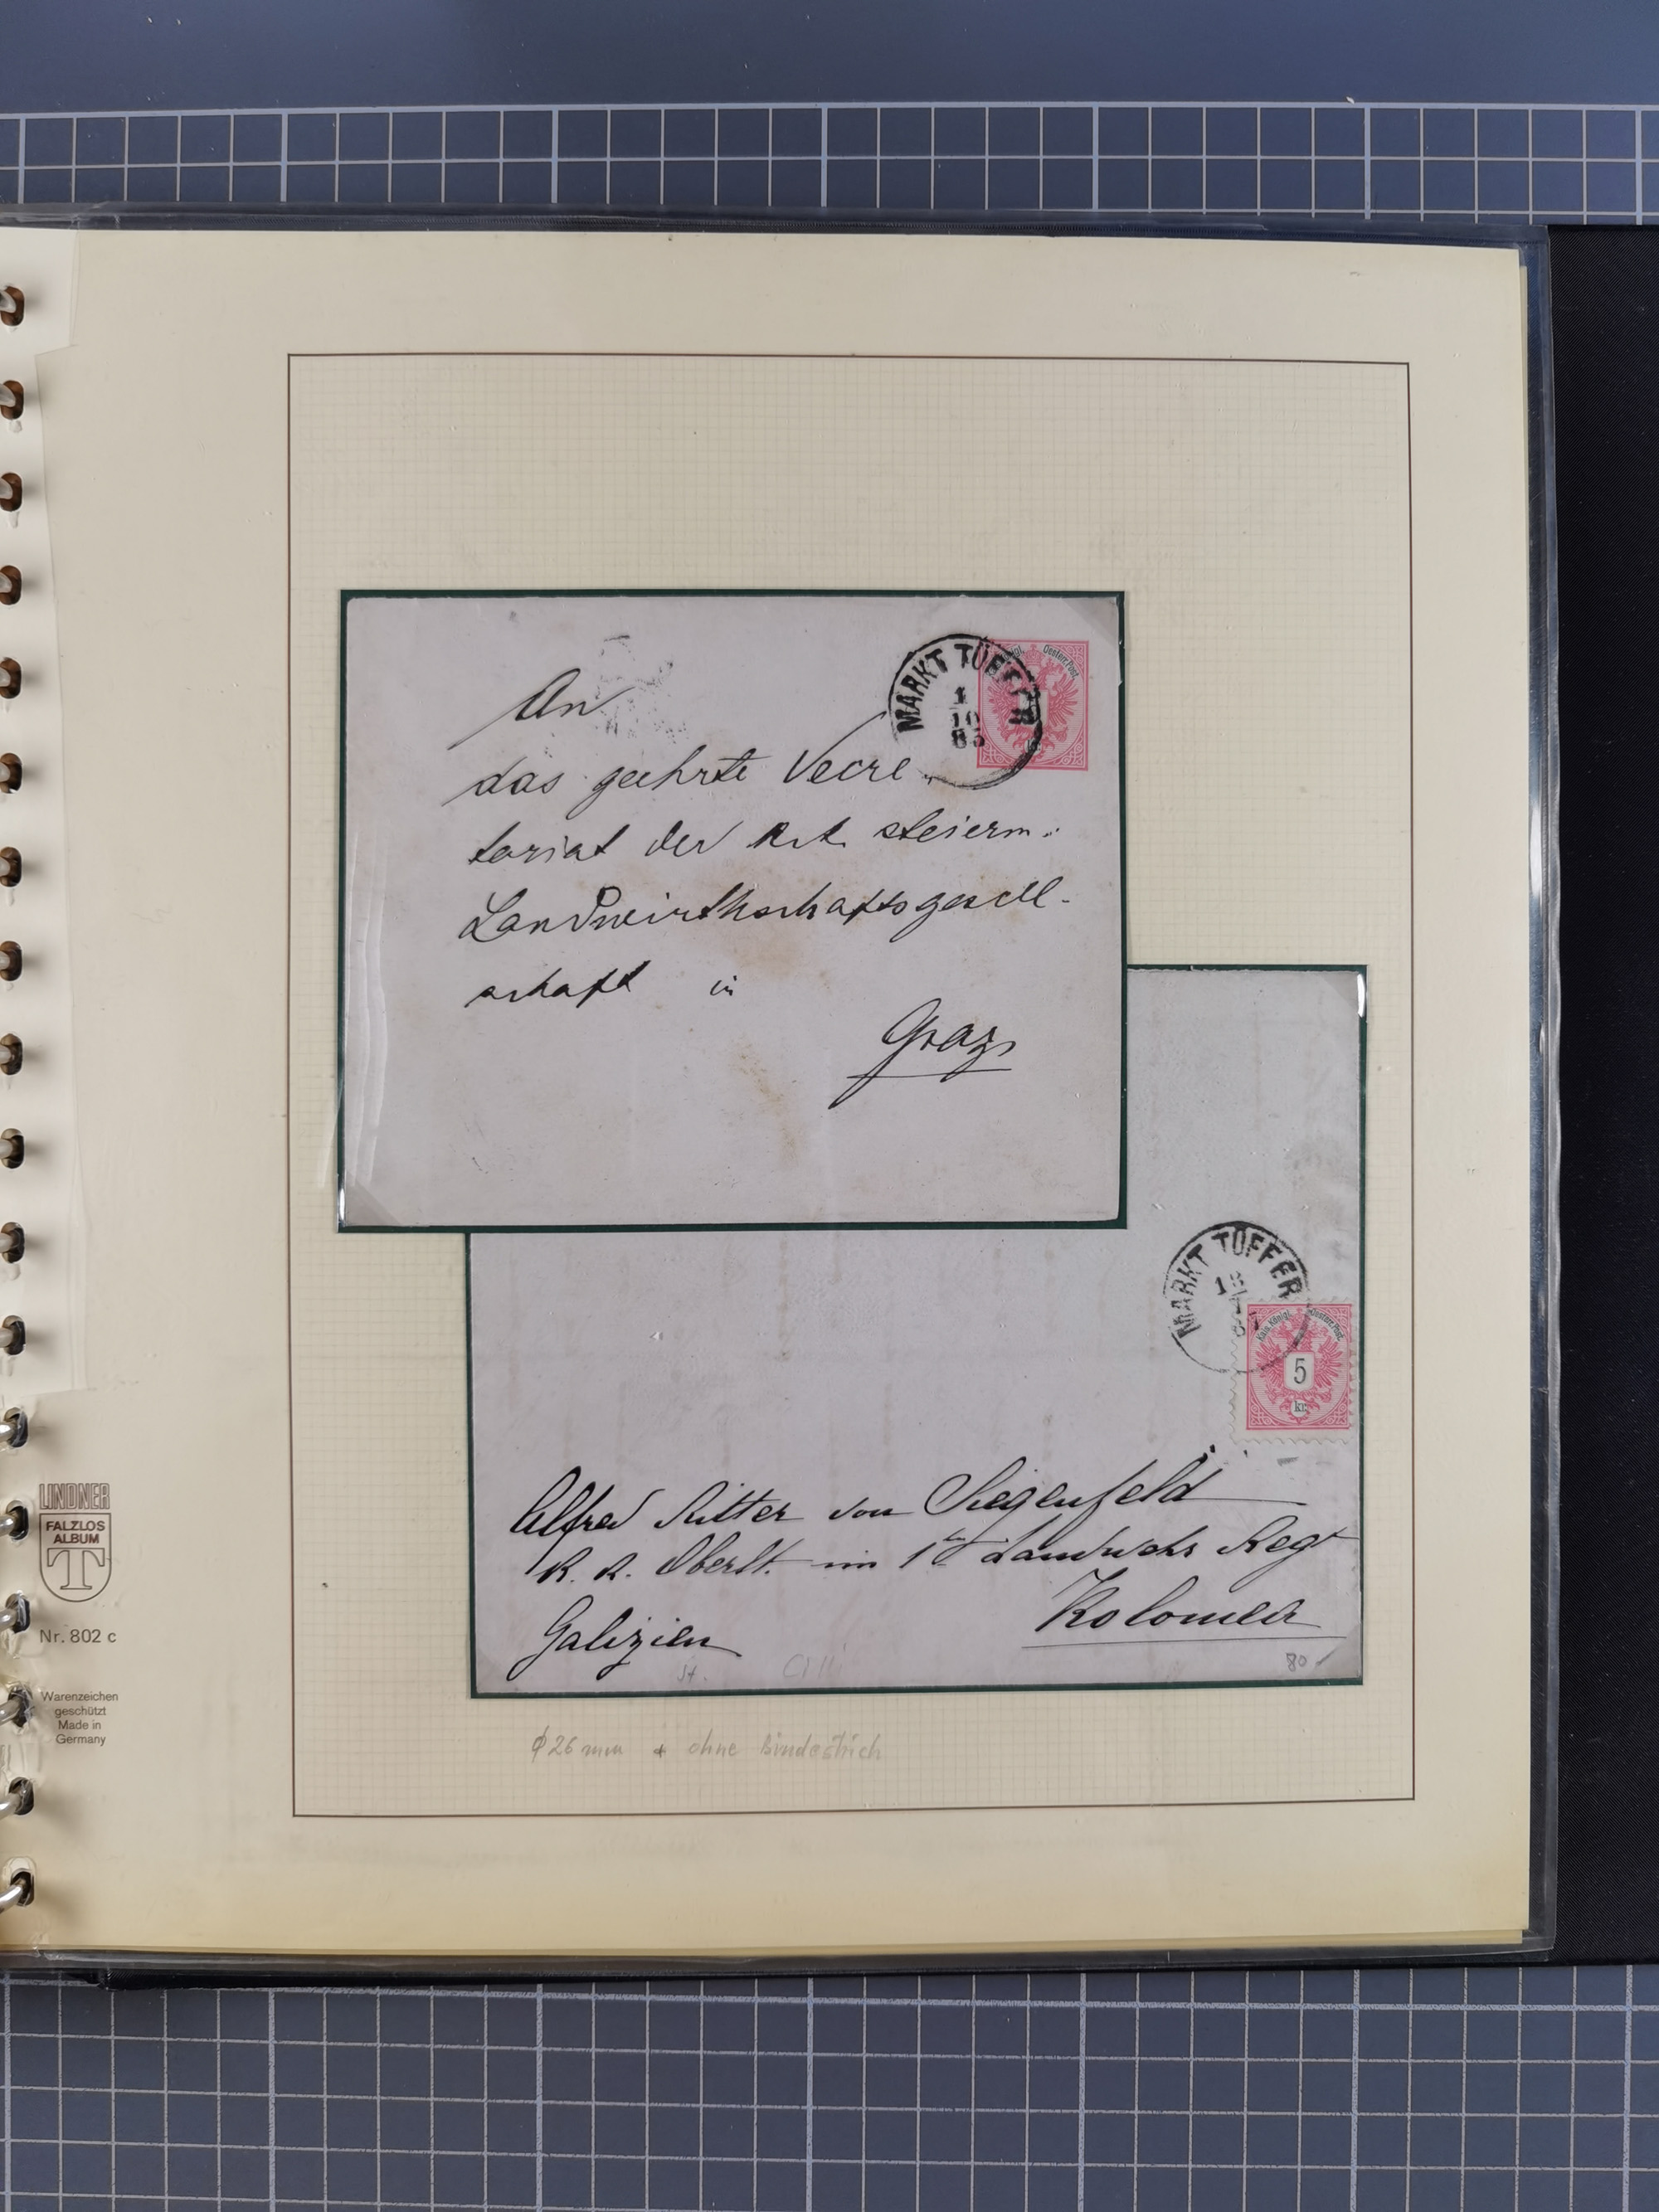 MARKT TÜFFER
1
10
85
Oesterr. Post.
An
das geehrte Secre
tariat der k.k. steierm.
Landwirthschaftsgesell-
schaft in
Graz
MARKT TÜFFER
Kais. Königl. Oesterr. Post.
5
kr.
Alfred Ritter von Siegenfeld
K. k. Oberlt. im 1ten Landwehr Regt
Kolomea
Galizien
St. Cilli
80
LINDNER
FALZLOS
ALBUM
T
Nr. 802 c
Warenzeichen
geschützt
Made in
Germany
φ 26 mm + ohne Bindestrich